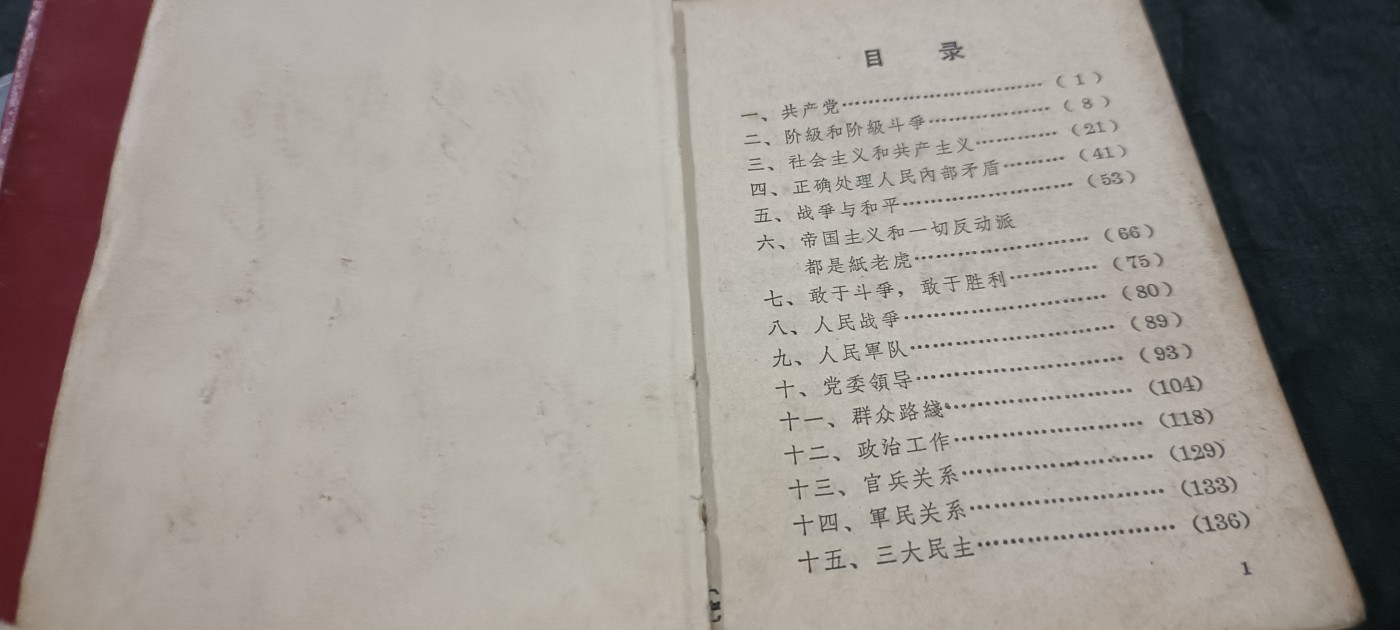 目 录
一、共产党……………………………（1）
二、阶級和阶級斗爭………………（8）
三、社会主义和共产主义…………（21）
四、正确处理人民內部矛盾………（41）
五、战爭与和平……………………（53）
六、帝国主义和一切反动派
都是紙老虎……………………（66）
七、敢于斗爭，敢于胜利…………（75）
八、人民战爭………………………（80）
九、人民軍队………………………（89）
十、党委領导………………………（93）
十一、群众路綫……………………（104）
十二、政治工作……………………（118）
十三、官兵关系……………………（129）
十四、軍民关系……………………（133）
十五、三大民主……………………（136）
1